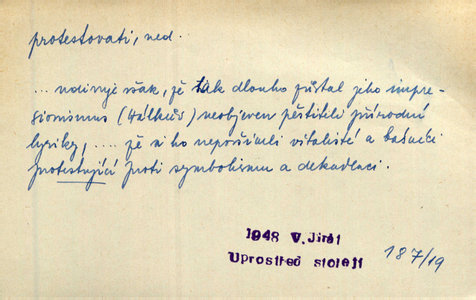 protestovati, ned..
... udivuje však, že tak dlouho zůstal jeho impre-
sionismus (Hálkův) neobjeven pěstiteli přírodní
lyriky, .... že si ho nepovšimli vitalisté a básníci
protestující proti symbolismu a dekadenci.
1948 V. Jirát
Uprostřed století
187/19